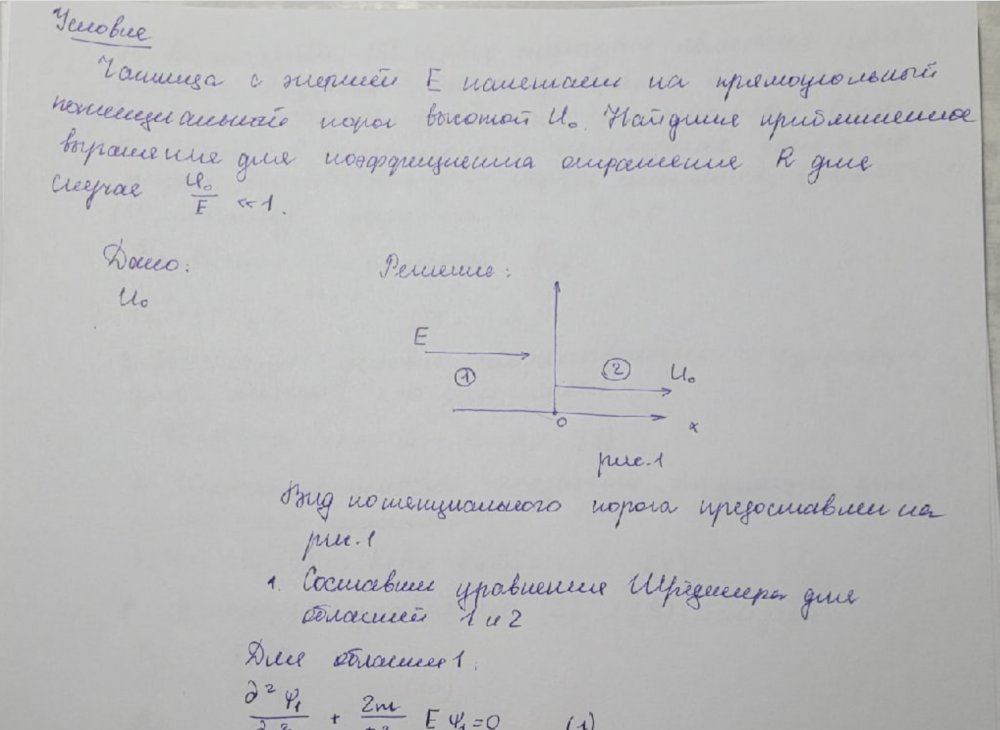 Условие
Частица с энергией E налетает на прямоугольный
потенциальный порог высотой U₀. Найдите приближенное
выражение для коэффициента отражения R для
случая U₀/E ≪ 1.
Дано:
U₀
Решение:
E
1
2
U₀
0
x
рис.1
Вид потенциального порога предоставлен на
рис.1
1. Составим уравнение Шредингера для
областей 1 и 2
Для области 1:
∂²Ψ₁ / + 2m / E Ψ₁=0 (1)